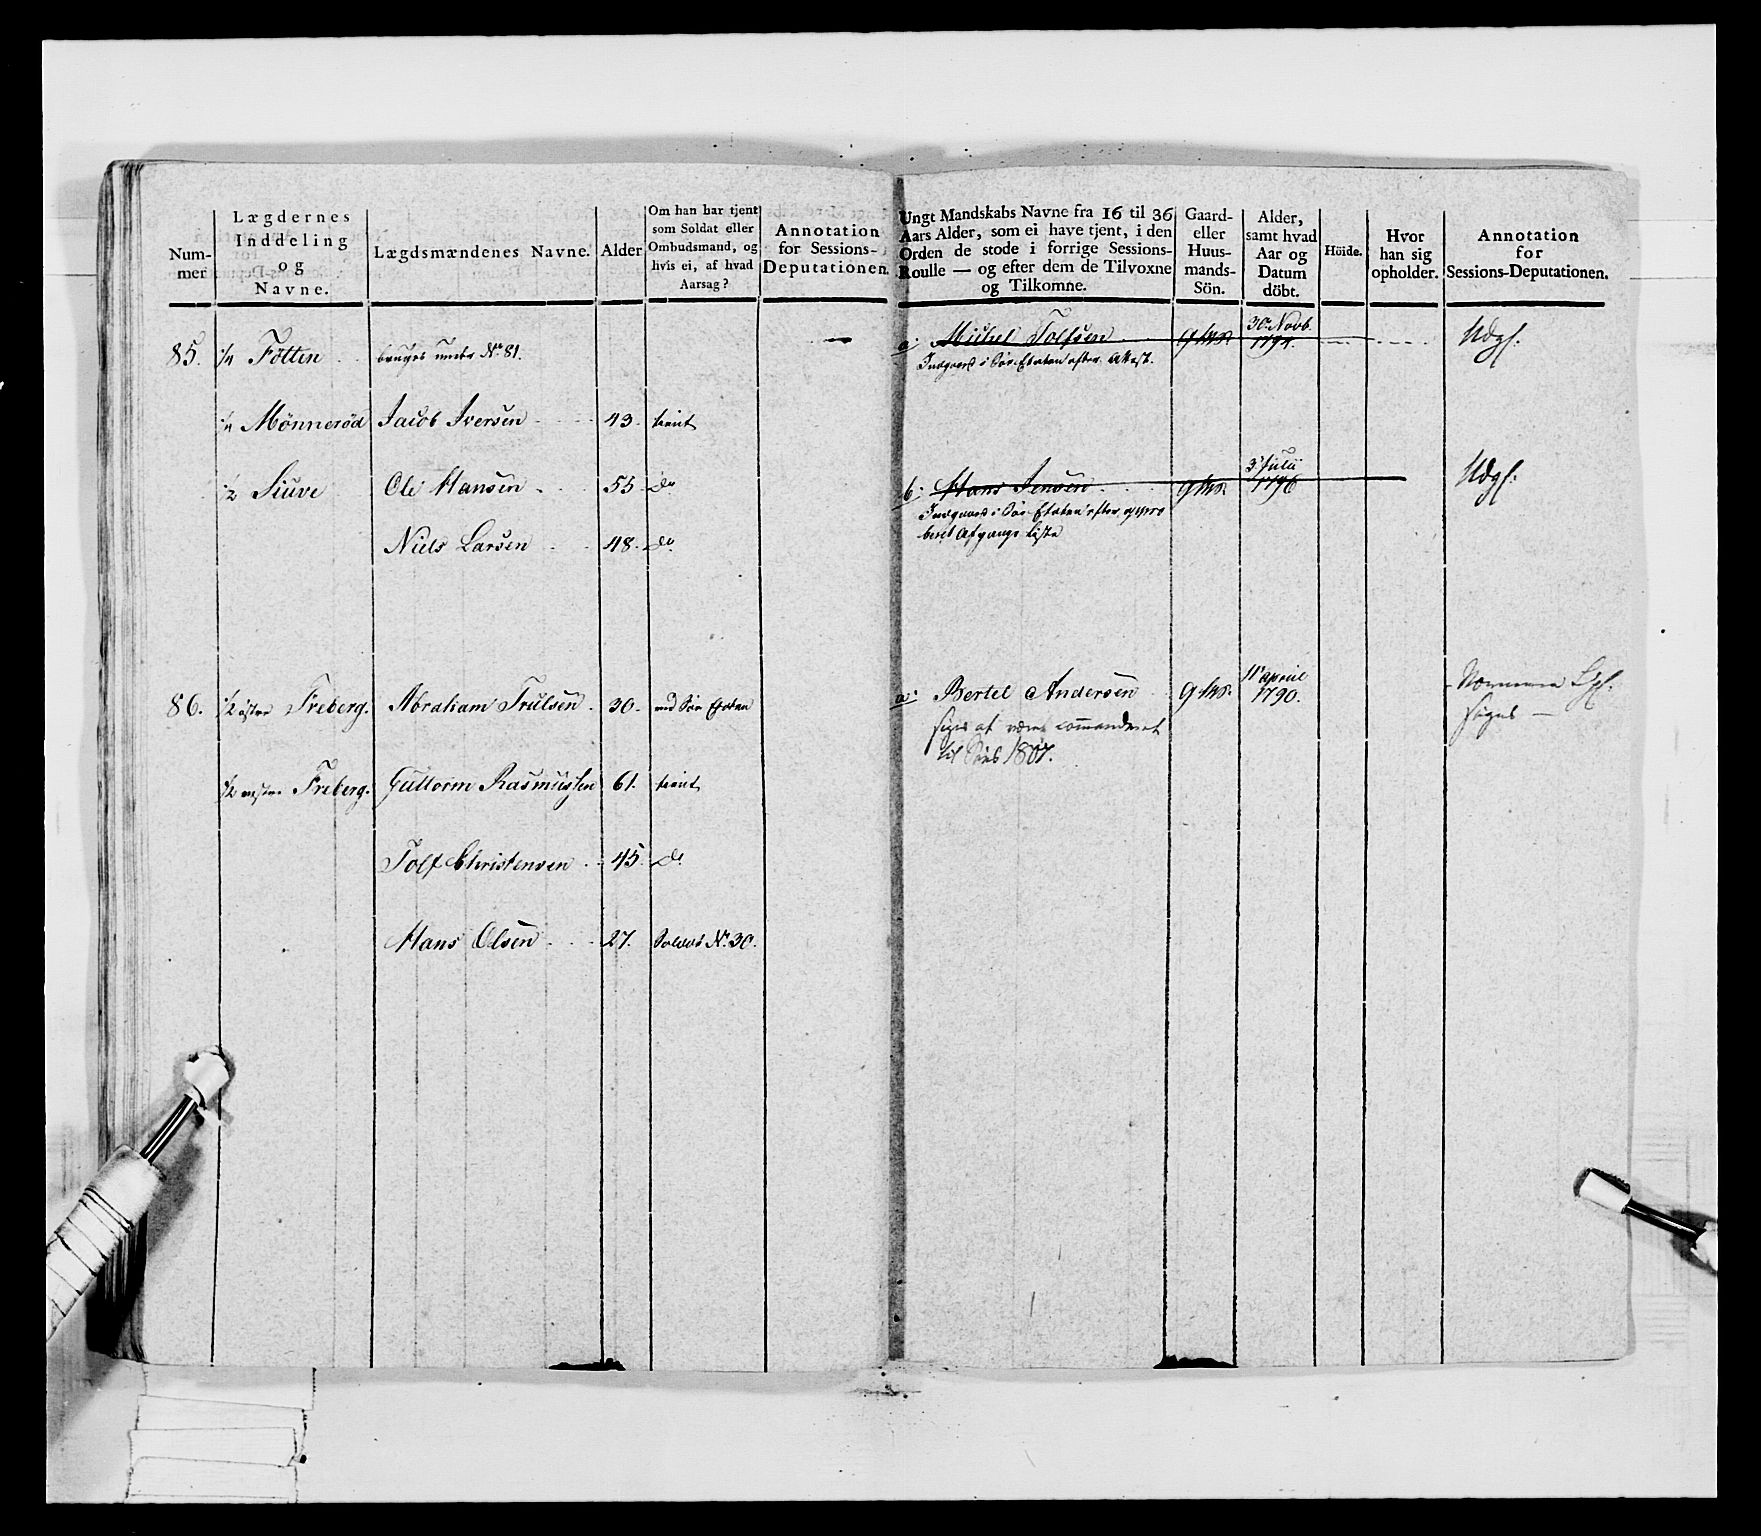 Num-
mer
Lægdernes
Inddeling
og
Navne.
Lægdsmændenes Navne.
Alder
Om han har tjent
som Soldat eller
Ombudsmand, og
hvis ei, af hvad
Aarsag?
Annotation
for Sessions-
Deputationen.
Ungt Mandskabs Navne fra 16 til 36
Aars Alder, som ei have tjent, i den
Orden de stode i forrige Sessions-
Roulle — og efter dem de Tilvoxne
og Tilkomne.
Gaard-
eller
Huus-
mands-
Sön.
Alder,
samt hvad
Aar og
Datum
döbt.
Höide.
Hvor
han sig
opholder.
Annotation
for
Sessions-Deputationen.
85. 1/4 Fötten bruges under No 81. —
a: Michel Tolfsen 30 Novb. 1794. Udgl:
Indgaaed i Søe-Etaten efter Attest.
1/4 Mönneröd Jacob Iversen 43. tient
1/2 Siuve Ole Hansen 55 do
b: Hans Jensen 3 Julii 1796 Udgl:
Indgaaed i Søe-Etaten efter appro
beret Afgangs Liste
Niels Larsen 48. do
86. 1/2 östre Freberg. Abraham Trulsen 30. ved Søe Etaten
a: Bertel Andersen 11 April 1790.
siges at være commanderet
til Søes 1807.
søges —
1/2 vestre Freberg. Guttorm Rasmussen 61. tient
Tolf Christensen 45. do
Hans Olsen 27. Soldat No 30.